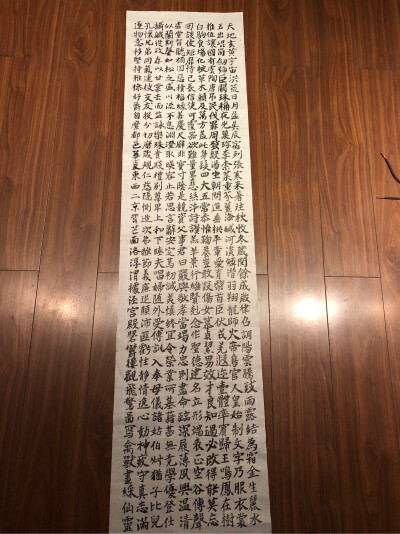 天地玄黃宇宙洪荒日月盈昃辰宿列張寒來暑往秋收冬藏閏餘成歲律呂調陽雲騰致雨露結為霜金生麗水
玉出崑岡劍號巨闕珠稱夜光果珍李柰菜重芥薑海鹹河淡鱗潛羽翔龍師火帝鳥官人皇始制文字乃服衣裳
推位讓國有虞陶唐弔民伐罪周發殷湯坐朝問道垂拱平章愛育黎首臣伏戎羌遐邇壹體率賓歸王鳴鳳在樹
白駒食場化被草木賴及萬方蓋此身髮四大五常恭惟鞠養豈敢毀傷女慕貞絜男效才良知過必改得能莫忘
罔談彼短靡恃己長信使可覆器欲難量墨悲絲染詩讚羔羊景行維賢克念作聖德建名立形端表正空谷傳聲
虛堂習聽禍因惡積福緣善慶尺璧非寶寸陰是競資父事君曰嚴與敬孝當竭力忠則盡命臨深履薄夙興溫凊
似蘭斯馨如松之盛川流不息淵澄取映容止若思言辭安定篤初誠美慎終宜令榮業所基籍甚無竟學優登仕
攝職從政存以甘棠去而益詠樂殊貴賤禮別尊卑上和下睦夫唱婦隨外受傅訓入奉母儀諸姑伯叔猶子比兒
孔懷兄弟同氣連枝交友投分切磨箴規仁慈隱惻造次弗離節義廉退顛沛匪虧性靜情逸心動神疲守真志滿
逐物意移堅持雅操好爵自縻都邑華夏東西二京背芒面洛浮渭據涇宮殿盤鬱樓觀飛驚圖寫禽獸畫綵仙靈